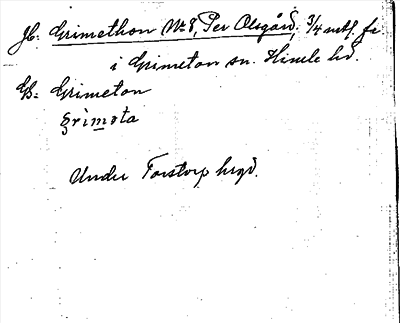 Jb. Grimethon Nr 8, Per Olsgård, 3/4 mtl. fr.
i Grimeton sn. Himle hd.
GB: Grimeton
grìmȩta
Under Torstorp hsgd.